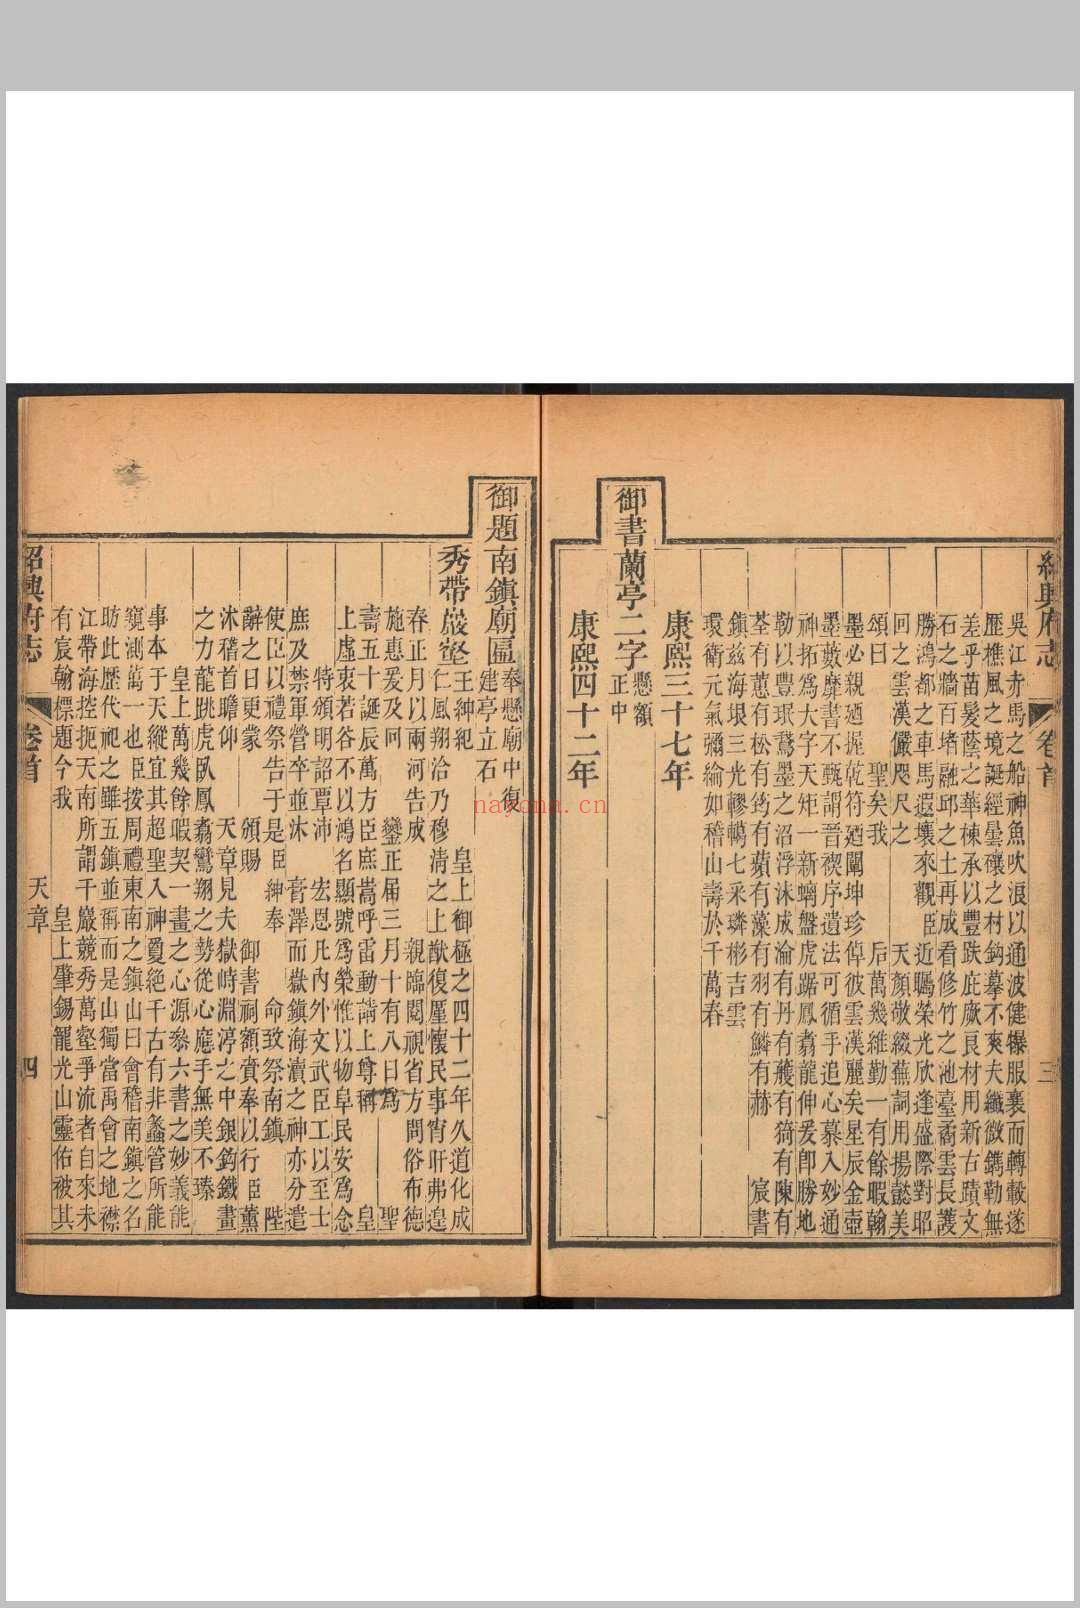 紹興府志 卷首 三
吳江赤馬之船神魚吹浪以通波健犦服襄而轉轂遂
歷樵風之境誕經曇礦之材鈎摹不爽夫纖微鐫勒無
差乎苗髮蔭之華棟承以豐趺庇廠良材用新古蹟文
石之牆百堵融邱之土再成看修竹之池臺矞雲長護
勝鴻都之車馬遐壤來觀臣 近矚榮光欣逢盛際對昭
回之雲漢儼咫尺之 天顏敬綴蕪詞用揚懿美
頌曰 聖矣我 后萬幾維勤一有餘暇翰
墨必親廼握乾符廼闡坤珍倬彼雲漢麗矣星辰金壺
墨藪靡書不甄謂晉禊序遺法可循手追心慕入妙通
神拓爲大字天矩一新螭盤虎踞鳳翥龍伸爰卽勝地
勒以豐珉鵞墨之沼浮沫成淪有丹有雘有猗有陳有
荃有蕙有松有筠有蘋有藻有羽有鱗有赫 宸書
鎮玆海垠三光轇轕七采璘彬吉雲
環衛元氣彌綸如稽山壽於千萬春
康熙三十七年
御書蘭亭二字 懸額正中
康熙四十二年
御題南鎮廟匾 奉懸廟中復建亭立石
秀帶巖壑 王紳紀 皇上御極之四十二年久道化成
仁風翔洽乃穆清之上猷復厪懷民事宵旰弗遑
春正月以兩河告成 親臨閱視省方問俗布德
施惠爰及回 鑾正屆三月十有八日爲 聖
壽五十誕辰萬方臣庶嵩呼雷動請上尊稱 皇
上虛衷若谷不以鴻名顯號爲榮惟以物阜民安爲念
特頒明詔覃沛 宏恩凡內外文武臣工以至士
庶及禁軍營卒並沐 膏澤而嶽鎮海瀆之神亦分遣
使臣以禮祭告于是臣紳奉 命致祭南鎮 陛
辭之日更蒙 頒賜 御書祠額賫奉以行臣薰
沐稽首瞻仰 天章見夫嶽峙淵渟之中銀鈎鐵畫
之力龍跳虎臥鳳翥鸞翔之勢從心應手無美不臻
皇上萬幾餘暇契一畫之心源叅六書之妙義能
事本于天縱宜其超聖入神夐絕千古有非蠡管所能
窺測萬一也臣按周禮東南之鎮山曰會稽南鎮之名
昉此歷代祀之雖五鎮並稱而是山獨當禹會之地襟
江帶海控扼天南所謂千巖競秀萬壑爭流者自來未
有宸翰標題今我 皇上肇錫寵光山靈佑被其
紹興府志 卷首 天章 四
nayona.cn